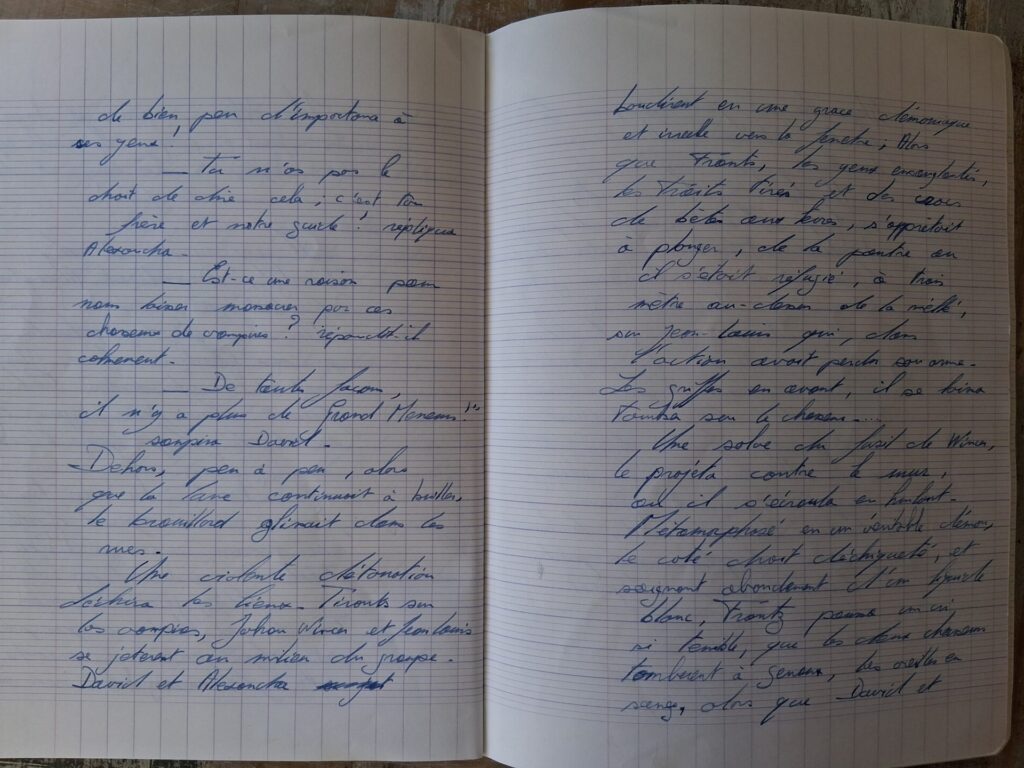 de bien peu d'importance à
ses yeux !
— Tu n'as pas le
droit de dire cela ; c'est ton
frère et notre guide ! répliqua
Alexandra.
— Est-ce une raison pour
nous laisser massacrer par ces
chasseurs de vampires ? répondit-il
calmement.
— De toute façon,
il n'y a plus de Grand Menons !"
soupira David.
Dehors, peu à peu, alors
que la lune continuait à briller,
le brouillard glissait dans les
rues.
Une violente détonation
déchira les lieux. Tirants sur
les vampires, Johan Wincs et Jean Louis
se jetèrent au milieu du groupe.
David et Alexandra
bondirent en une grace démoniaque
et irréelle vers la fenêtre, Alors
que Frantz, les yeux ensanglantés,
les traits tirés et des
de bêtes aux lèvres, s'apprêtait
à plonger, de la poutre ou
il s'était réfugié, à trois
mètre au-dessus de la mêlé,
sur Jean-Louis qui, dans
l'action avait perdu son arme.
Les griffes en avant, il se laissa
tomber sur le chasseur....
Une salve du fusil de Wincs,
le projéta contre le mur,
ou il s'écroula en hurlant.
Métamorphosé en un véritable démon,
le coté droit déchiqueté, et
saignant abondament d'un liquide
blanc, Frantz poussa un cri,
si terrible, que les deux chasseurs
tombèrent à genoux, les oreilles en
sang, alors que David et